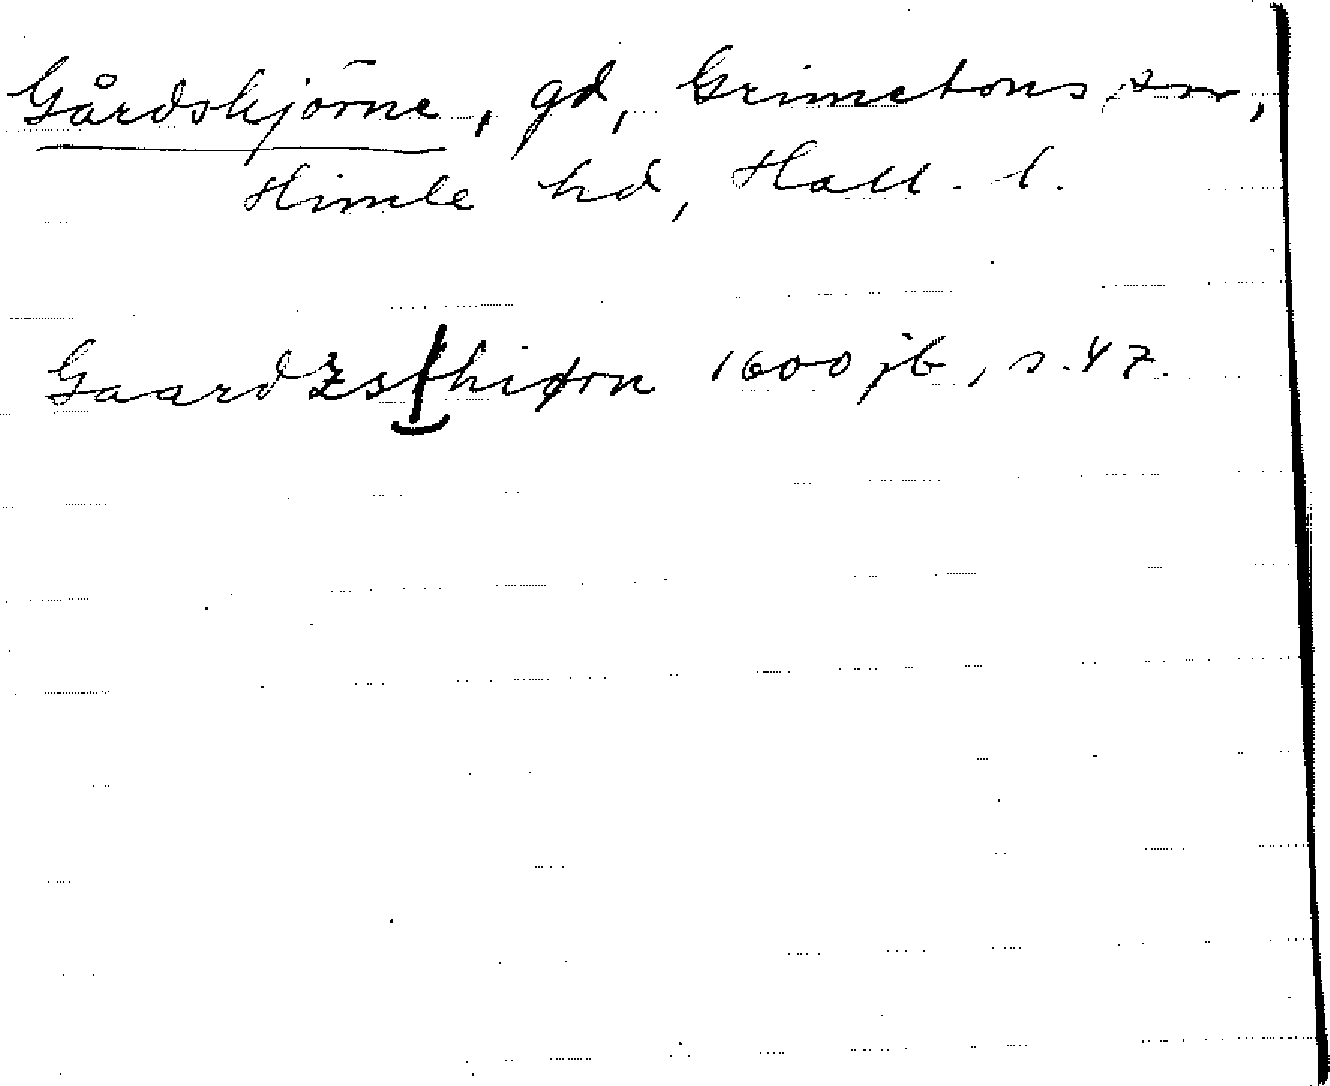 Gårdskjörne, gd, Grimetons sn,
Himle hd, Hall. l.
Gaardzs kiørn 1600 jb, s. 47.